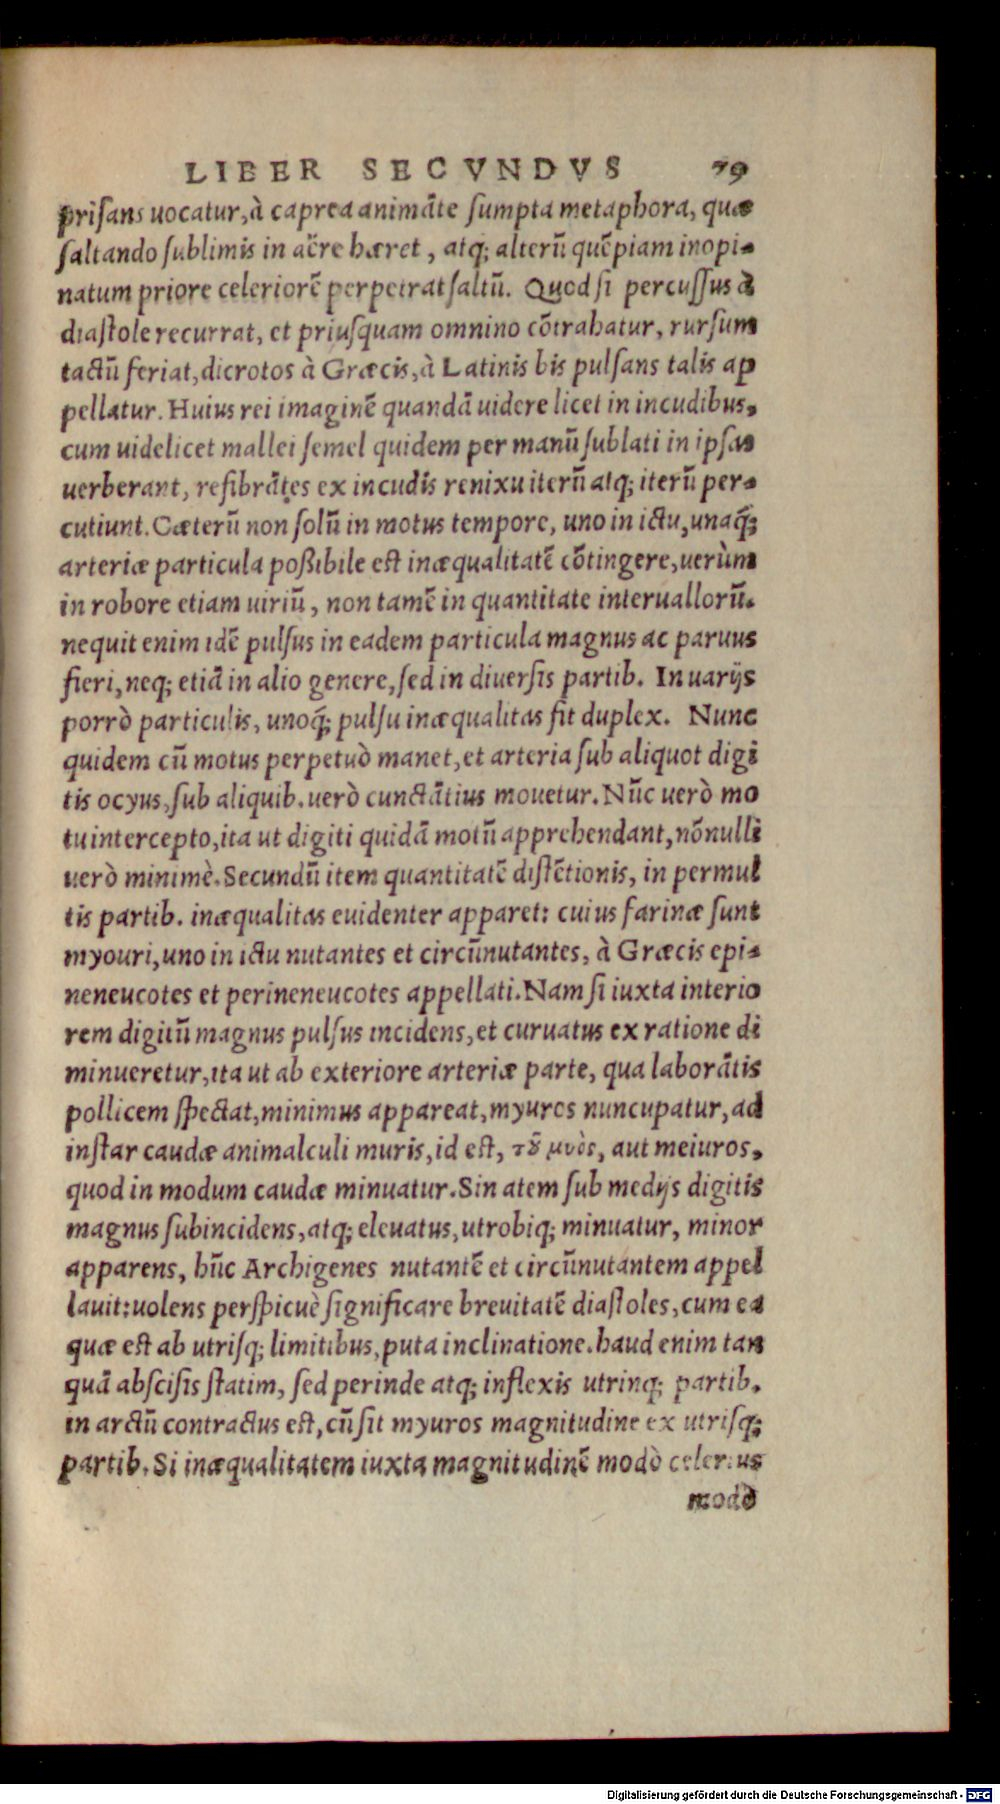 LIBER SECVNDVS 79
priſans uocatur, à caprea animāte ſumpta metaphora, quæ
ſaltando ſublimis in aëre hæret, atq; alterū quēpiam inopi-
natum priore celeriorē perpetrat ſaltū. Quod ſi percuſſus à
diaſtole recurrat, et priuſquam omnino cōtrahatur, rurſum
tactū feriat, dicrotos à Græcis, à Latinis bis pulſans talis ap
pellatur. Huius rei imaginē quandā uidere licet in incudibus,
cum uidelicet mallei ſemel quidem per manū ſublati in ipſas
uerberant, reſibrātes ex incudis renixu iterū atq; iterū per-
cutiunt. Cæterū non ſolū in motus tempore, uno in ictu, unaq́;
arteriæ particula poßibile eſt inæqualitatē cōtingere, uerùm
in robore etiam uiriū, non tamē in quantitate interuallorū.
nequit enim idē pulſus in eadem particula magnus ac paruus
fieri, neq; etiā in alio genere, ſed in diuerſis partib. In uarijs
porrò particulis, unoq́; pulſu inæqualitas fit duplex. Nunc
quidem cū motus perpetuò manet, et arteria ſub aliquot digi
tis ocyus, ſub aliquib. uerò cunctātius mouetur. Nūc uerò mo
tu intercepto, ita ut digiti quidā motū apprehendant, nōnulli
uerò minimè. Secundū item quantitatē diſtētionis, in permul
tis partib. inæqualitas euidenter apparet: cuius farinæ ſunt
myouri, uno in ictu nutantes et circūnutantes, à Græcis epi-
neneucotes et perineneucotes appellati. Nam ſi iuxta interio
rem digitū magnus pulſus incidens, et curuatus ex ratione di
minueretur, ita ut ab exteriore arteriæ parte, qua laborātis
pollicem ſpectat, minimus appareat, myuros nuncupatur, ad
inſtar caudæ animalculi muris, id eſt, τȣ͂ μυὸς, aut meiuros,
quod in modum caudæ minuatur. Sin atem ſub medijs digitis
magnus ſubincidens, atq; eleuatus, utrobiq; minuatur, minor
apparens, hūc Archigenes nutantē et circūnutantem appel
lauit: uolens perſpicuè ſignificare breuitatē diaſtoles, cum ea
quæ eſt ab utriſq; limitibus, puta inclinatione. haud enim tan
quā abſciſis ſtatim, ſed perinde atq; inflexis utrinq; partib.
in arctū contractus eſt, cū ſit myuros magnitudine ex utriſq;
partib. Si inæqualitatem iuxta magnitudinē modò celerius
modò
Digitalisierung gefördert durch die Deutsche Forschungsgemeinschaft - DFG